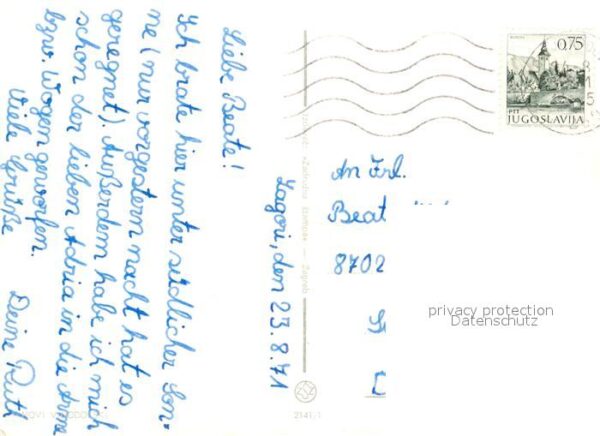 Zagori, den 23.8.71
Liebe Beate!
Ich brate hier unter südlicher Son-
ne (nur vorgestern nacht hat es
geregnet). Außerdem habe ich mich
schon der lieben Adria in die Arme
bzw. Wogen geworfen.
Viele Grüße
Deine Ruth
An Frl.
Beat
8702
G
privacy protection
Datenschutz
0,75
PTT
JUGOSLAVIJA
Zagreb
2141.1